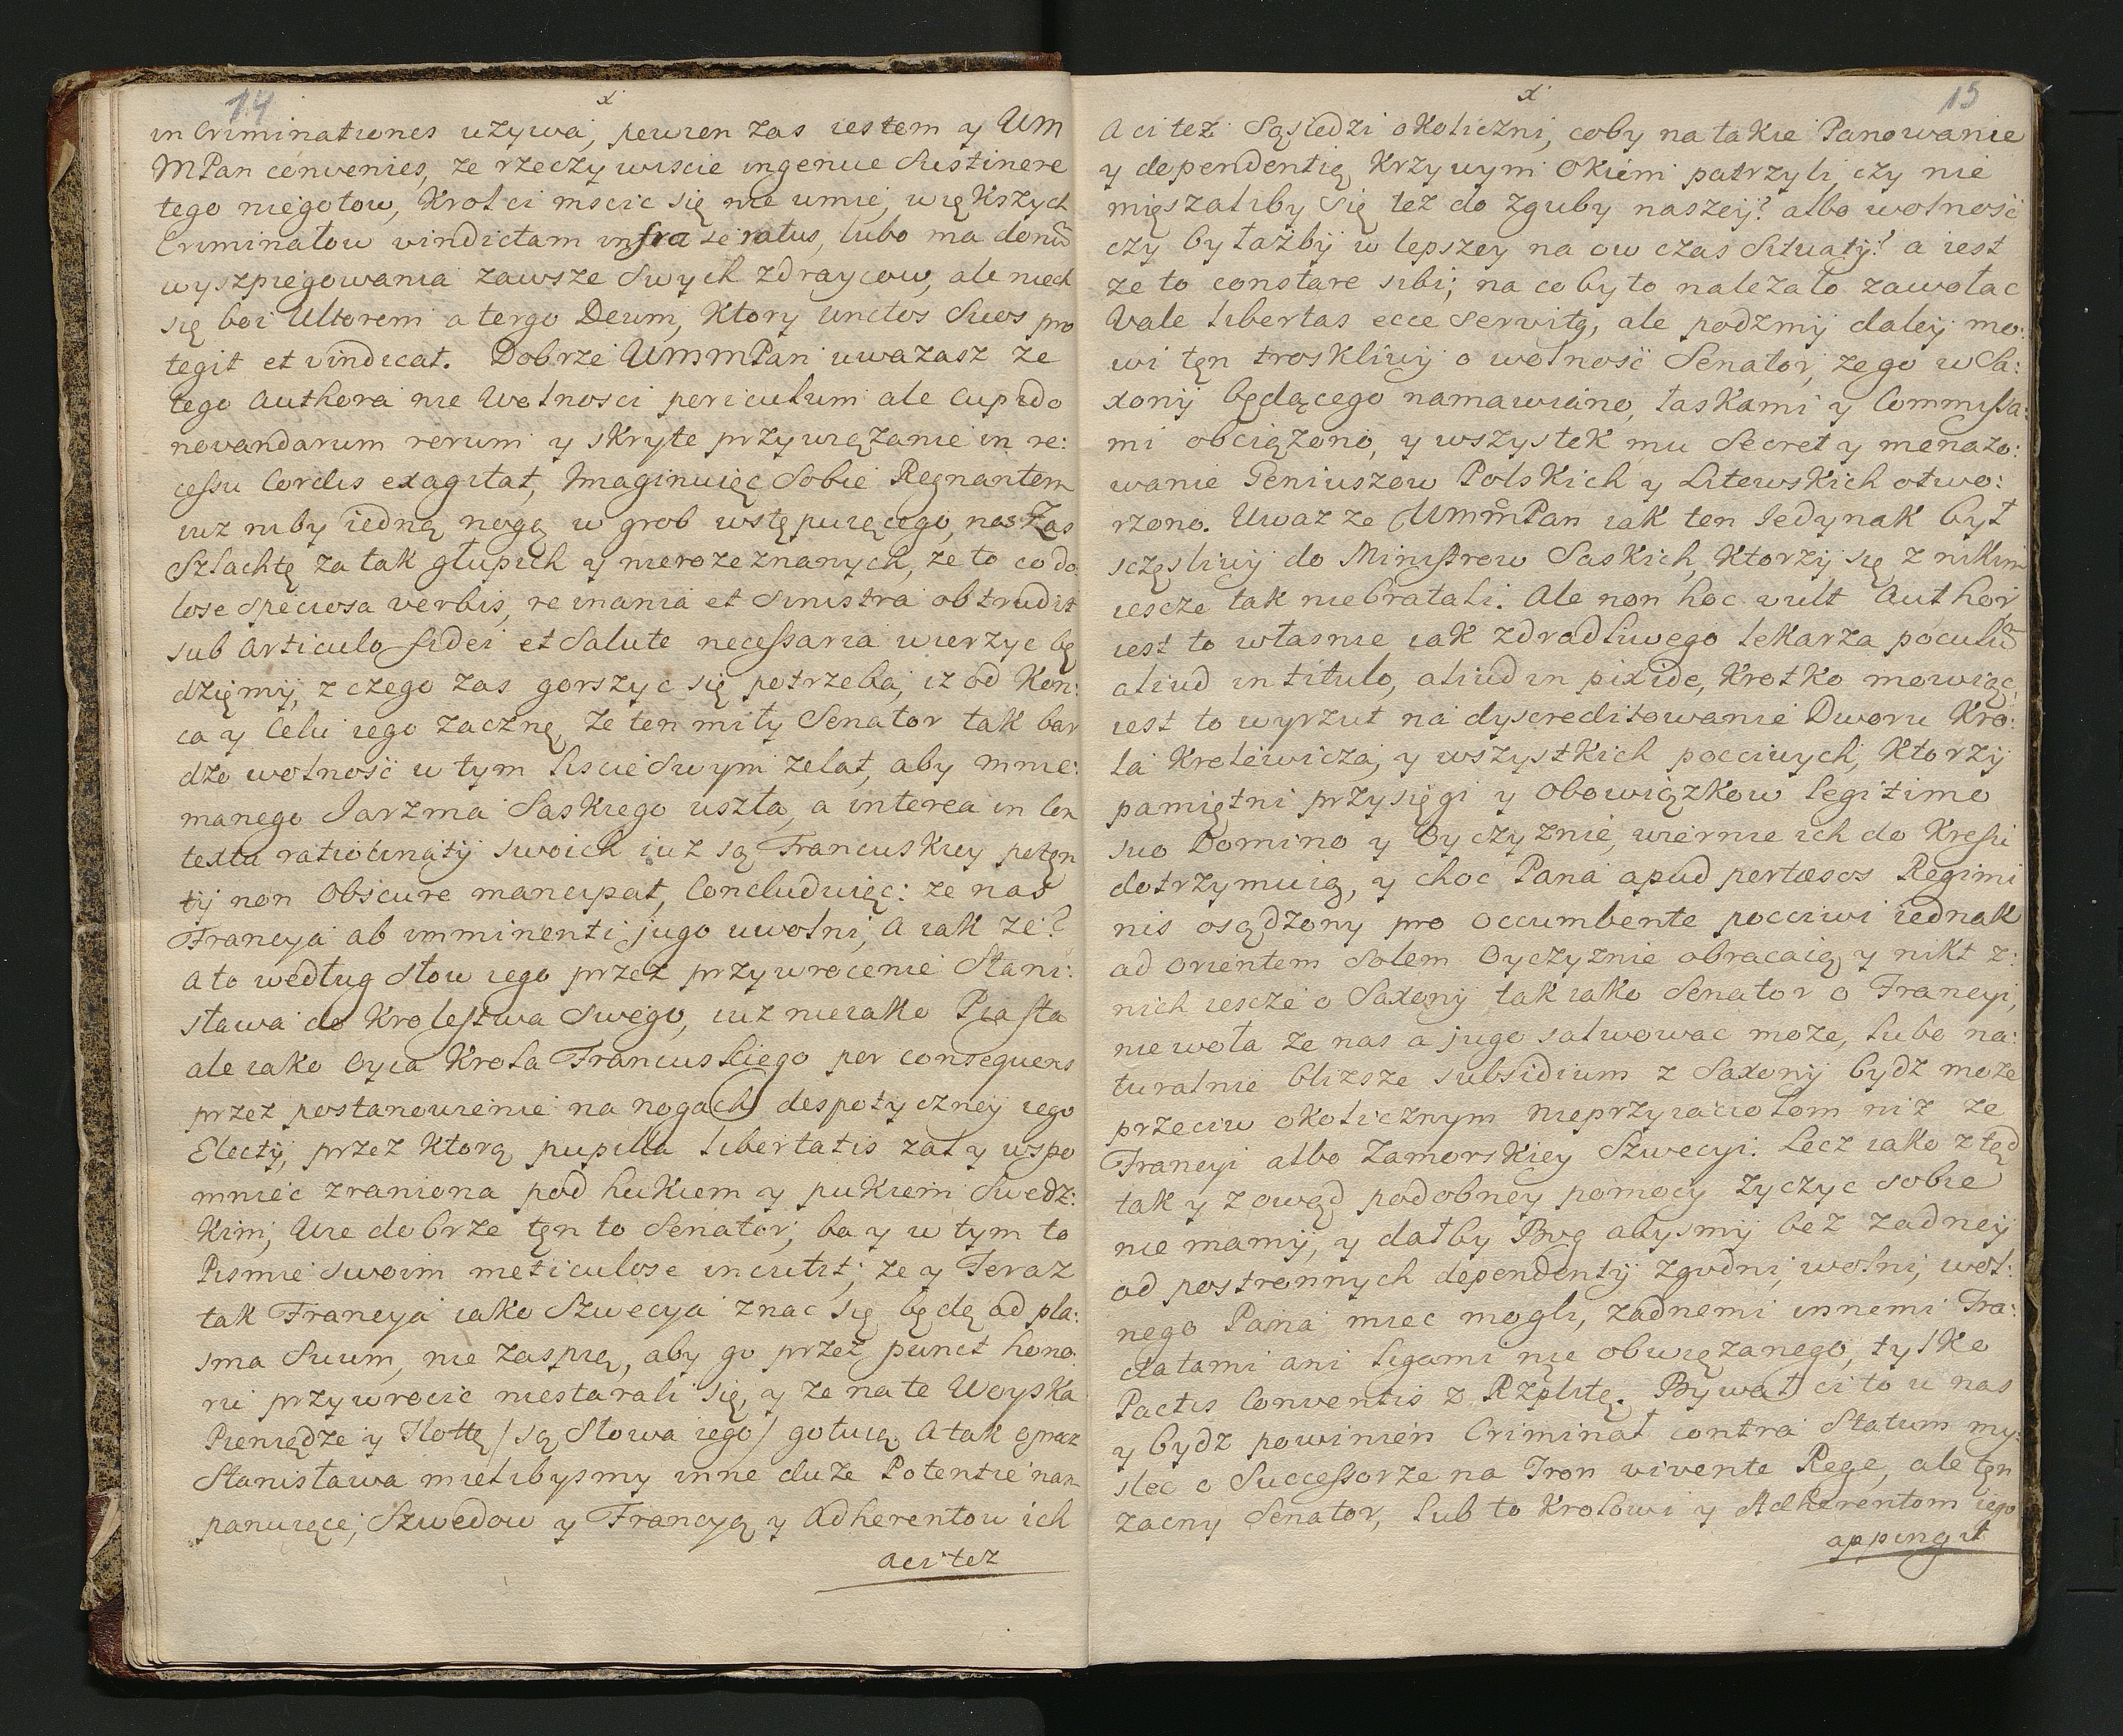 14
x
in Criminationes uzywa, pewien zas iestem y UM
MPan convenies, ze rzeczywiscie ingenue Sustinere
tego niegotow, Krol ci mscic się nie umie, większych
Criminałow vindictam infra se ratus, lubo ma donũ
wyszpiegowania zawsze Swych zdraycow, ale niech
się boi Ultorem a tergo Deum, Ktory Unctos Suos pro
tegit et vindicat. Dobrze UMMPan uwazasz ze
tego Authora nie Wolnosci periculum ale Cupido
novandarum rerum y skryte przywiązanie in re:
cessu Cordis exagitat, Imaginuiąc Sobie Regnantem
iuz niby iedną nogą w grob wstępuiącego, nas Zas
Szlachtę za tak głupich y nierozeznanych, ze to co do
lose speciosa verbis, re inania et Sinistra obtrudit
sub Articulo fidei et Salute necessaria wierzyc bę
dzięmy, z czego zas gorszyc się potrzeba, iz od Kon:
ca y Celu iego zacznę, ze ten miły Senator tak bar
dzo wolność w tym liscie Swym zelat, aby mnie:
manego Jarzma Saskiego uszła, a interea in Con
textu ratiocinatij swoich iuz są Francuskiey poten
tij non Obscure mancipat, Concluduiąc: ze nas
Francya ab imminenti jugo uwolni, A iak ze?
A to według Słow iego przez przywrocenie Stani:
sława do Krolestwa Swego, iuz nieiako Piasta
ale iako Oyca Krola Francuskiego per consequens
przez postanowienie na nogach despotyczney iego
Electij, przez Ktorą pupilla libertatis zal y wspo
mniec zraniona pod hukiem y pukiem Swedz:
Kim; Wie dobrze ten to Senator, ba y w tym to
Pismie swoim meticulose incutit; ze y Teraz
tak Francya iako Szwecya znac się będą ad pla:
sma Suum, nie zaspią, aby go przez punct hono:
ru przywrocic niestarali się, y ze na te Woyska
Pieniądze y Flottę / są Słowa iego / gotuią. A tak oprocz
Stanisława mielibysmy inne duze Potentie nam
panuiące; Szwedow y Francyą y Adherentow ich
aci tez
15
x
A ci tez Sąsiedzi okoliczni, coby na takie Panowanie
y dependentią Krzywym Okiem patrzyli, czy nie
mięszaliby się tez do zguby naszeij? albo wolność
czy byłazbÿ w lepszey na ow czas Situatij? a iest
ze to constare sibi; na co by to nalezało zawołac
Vale libertas ecce Servitą, ale podzmij daleij mo:
wi ten troskliwij o wolność Senator, ze go w Sa:
xonij będącego namawiano, łaskami y Commissa:
mi obciązono, y wszystek mu Secret y menazo:
wanie Geniuszow Polskich y Litewskich otwo:
rzono. Uwaz ze UMMPan iak ten Jedynak był
sczęsliwij do Ministrow Saskich, Ktorzij się z nikim
iescze tak niebratali. Ale non hoc vult Author
iest to własnie iak zdradliwego lekarza poculũ
aliud in titulo, aliud in pixide, Krotko mowiąc,
iest to wyrzut na dyscreditowanie Dworu Kro:
la Krolewicza, y wszystkich pocciwych, Ktorzij
pamiętni przysięgi y Obowiązkow legitimo
suo Domino y Oyczyznie, wiernie ich do Kresu
dotrzymuią, y choc Pana apud pertæsos Regimi
nis osądzony pro occumbente pocciwi iednak
ad Orientem Solem Oyczyznie obracaią y nikt z:
nich iescze o Saxonij tak iako Senator o Francyi,
niewoła ze nas a jugo salwowac moze, lubo na:
turalnie blizsze subsidium z Saxonij bydz moze
przeciw okolicznym nieprzyiaciołom niz ze
Francyi albo Zamorskiey Szwecyi. Lecz iako z tąd
tak y z owąd podobney pomocy zyczyc sobie
nie mamij, y dałby Bog abysmij bez zadneij
od postronnych dependentij zgodni, wolni, wol:
nego Pana miec mogli, zadnemi innemi Tra:
ctatami ani ligami nie obwiązanego, tylko
Pactis Conventis z Rzpltą. Bywał ci to u nas
y bydz powinien Criminał contra Statum my:
slec o Successorze na Tron vivente Rege, ale ten
zacny Senator, lub to Krolowi y Adherentom iego
appingit